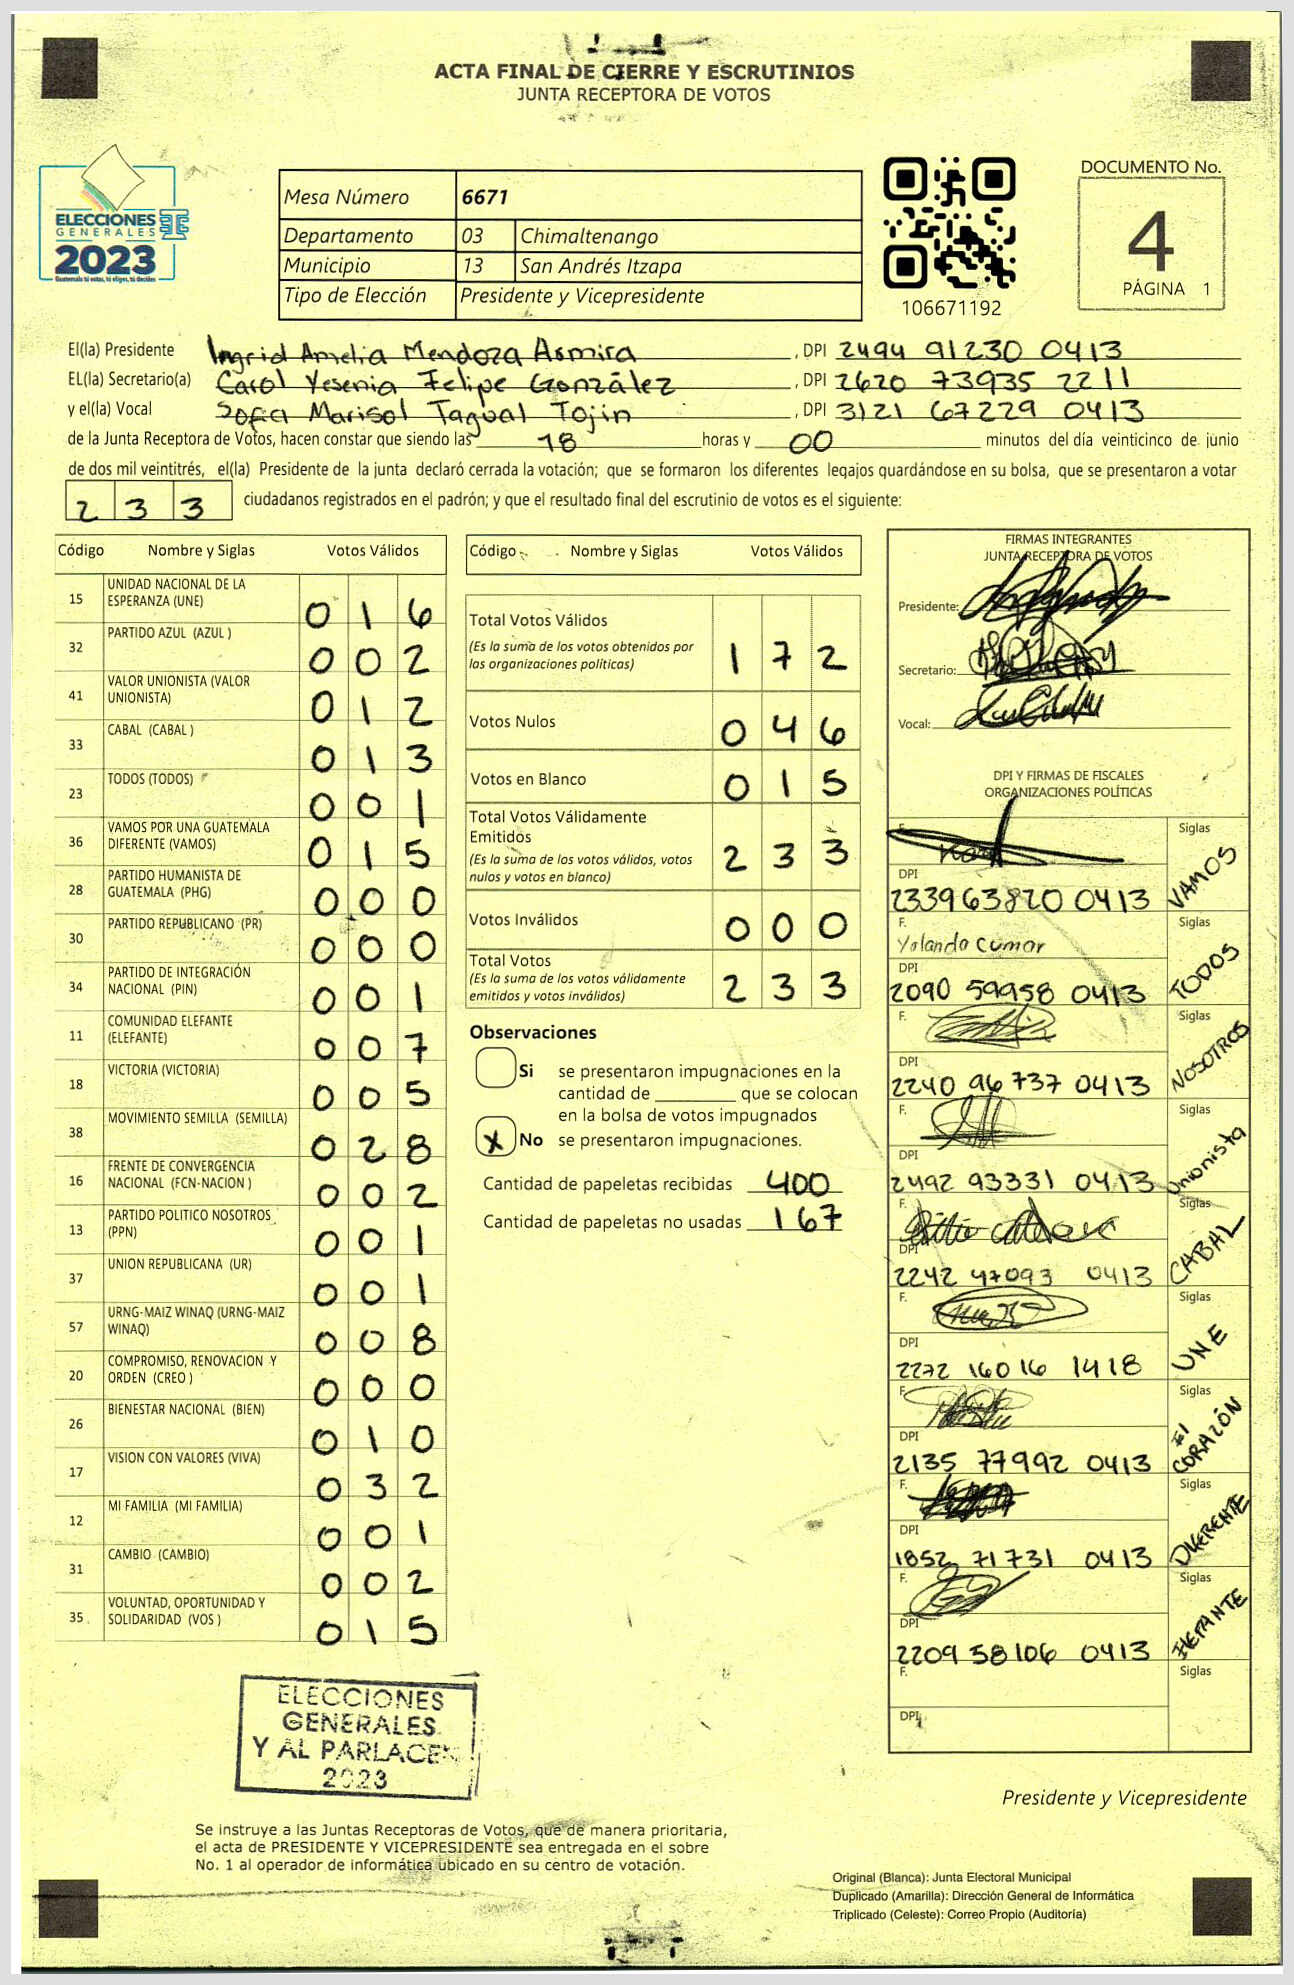 ACTA FINAL DE CIERRE Y ESCRUTINIOS
JUNTA RECEPTORA DE VOTOS
ELECCIONES
GENERALES
2023
Guatemala tú votas, tú eliges, tú decides
Mesa Número 6671
Departamento 03 Chimaltenango
Municipio 13 San Andrés Itzapa
Tipo de Elección Presidente y Vicepresidente
106671192
DOCUMENTO No.
4
PÁGINA 1
El(la) Presidente Ingrid Amelia Mendoza Asmira, DPI 2494 91230 0413
EL(la) Secretario(a) Carol Yesenia Felipe González, DPI 2620 73935 2211
y el(la) Vocal Sofia Marisol Tagual Tojin, DPI 3121 67229 0413
de la Junta Receptora de Votos, hacen constar que siendo las 18 horas y 00 minutos del día veinticinco de junio
de dos mil veintitrés, el(la) Presidente de la junta declaró cerrada la votación; que se formaron los diferentes legajos quardándose en su bolsa, que se presentaron a votar
2 3 3 ciudadanos registrados en el padrón; y que el resultado final del escrutinio de votos es el siguiente:
Código Nombre y Siglas Votos Válidos
15 UNIDAD NACIONAL DE LA ESPERANZA (UNE) 0 1 6
32 PARTIDO AZUL (AZUL ) 0 0 2
41 VALOR UNIONISTA (VALOR UNIONISTA) 0 1 2
33 CABAL (CABAL ) 0 1 3
23 TODOS (TODOS) 0 0 1
36 VAMOS POR UNA GUATEMALA DIFERENTE (VAMOS) 0 1 5
28 PARTIDO HUMANISTA DE GUATEMALA (PHG) 0 0 0
30 PARTIDO REPUBLICANO (PR) 0 0 0
34 PARTIDO DE INTEGRACIÓN NACIONAL (PIN) 0 0 1
11 COMUNIDAD ELEFANTE (ELEFANTE) 0 0 7
18 VICTORIA (VICTORIA) 0 0 5
38 MOVIMIENTO SEMILLA (SEMILLA) 0 2 8
16 FRENTE DE CONVERGENCIA NACIONAL (FCN-NACION ) 0 0 2
13 PARTIDO POLITICO NOSOTROS (PPN) 0 0 1
37 UNION REPUBLICANA (UR) 0 0 1
57 URNG-MAIZ WINAQ (URNG-MAIZ WINAQ) 0 0 8
20 COMPROMISO, RENOVACION Y ORDEN (CREO ) 0 0 0
26 BIENESTAR NACIONAL (BIEN) 0 1 0
17 VISION CON VALORES (VIVA) 0 3 2
12 MI FAMILIA (MI FAMILIA) 0 0 1
31 CAMBIO (CAMBIO) 0 0 2
35 VOLUNTAD, OPORTUNIDAD Y SOLIDARIDAD (VOS ) 0 1 5
Código Nombre y Siglas Votos Válidos
Total Votos Válidos 1 7 2
(Es la suma de los votos obtenidos por
las organizaciones políticas)
Votos Nulos 0 4 6
Votos en Blanco 0 1 5
Total Votos Válidamente
Emitidos 2 3 3
(Es la suma de los votos válidos, votos
nulos y votos en blanco)
Votos Inválidos 0 0 0
Total Votos 2 3 3
(Es la suma de los votos válidamente
emitidos y votos inválidos)
Observaciones
Si se presentaron impugnaciones en la
cantidad de ________ que se colocan
en la bolsa de votos impugnados
X No se presentaron impugnaciones.
Cantidad de papeletas recibidas 400
Cantidad de papeletas no usadas 167
FIRMAS INTEGRANTES
JUNTA RECEPTORA DE VOTOS
Presidente:
Secretario:
Vocal:
DPI Y FIRMAS DE FISCALES
ORGANIZACIONES POLÍTICAS
F. Siglas VAMOS
DPI
2339 63820 0413
F. Yolanda Cumar Siglas TODOS
DPI
2090 59958 0413
F. Siglas NOSOTROS
DPI
2240 96737 0413
F. Siglas Unionista
DPI
2492 93331 0413
F. Siglas CABAL
DPI
2242 47093 0413
F. Siglas UNE
DPI
2272 16016 1418
F. Siglas El CORAZÓN
DPI
2135 77992 0413
F. Siglas DIFERENTE
DPI
1852 71731 0413
F. Siglas
DPI
2209 58106 0413
F. Siglas
DPI
ELECCIONES
GENERALES
Y AL PARLACEN
2023
Presidente y Vicepresidente
Se instruye a las Juntas Receptoras de Votos, que de manera prioritaria,
el acta de PRESIDENTE Y VICEPRESIDENTE sea entregada en el sobre
No. 1 al operador de informática ubicado en su centro de votación.
Original (Blanca): Junta Electoral Municipal
Duplicado (Amarilla): Dirección General de Informática
Triplicado (Celeste): Correo Propio (Auditoría)